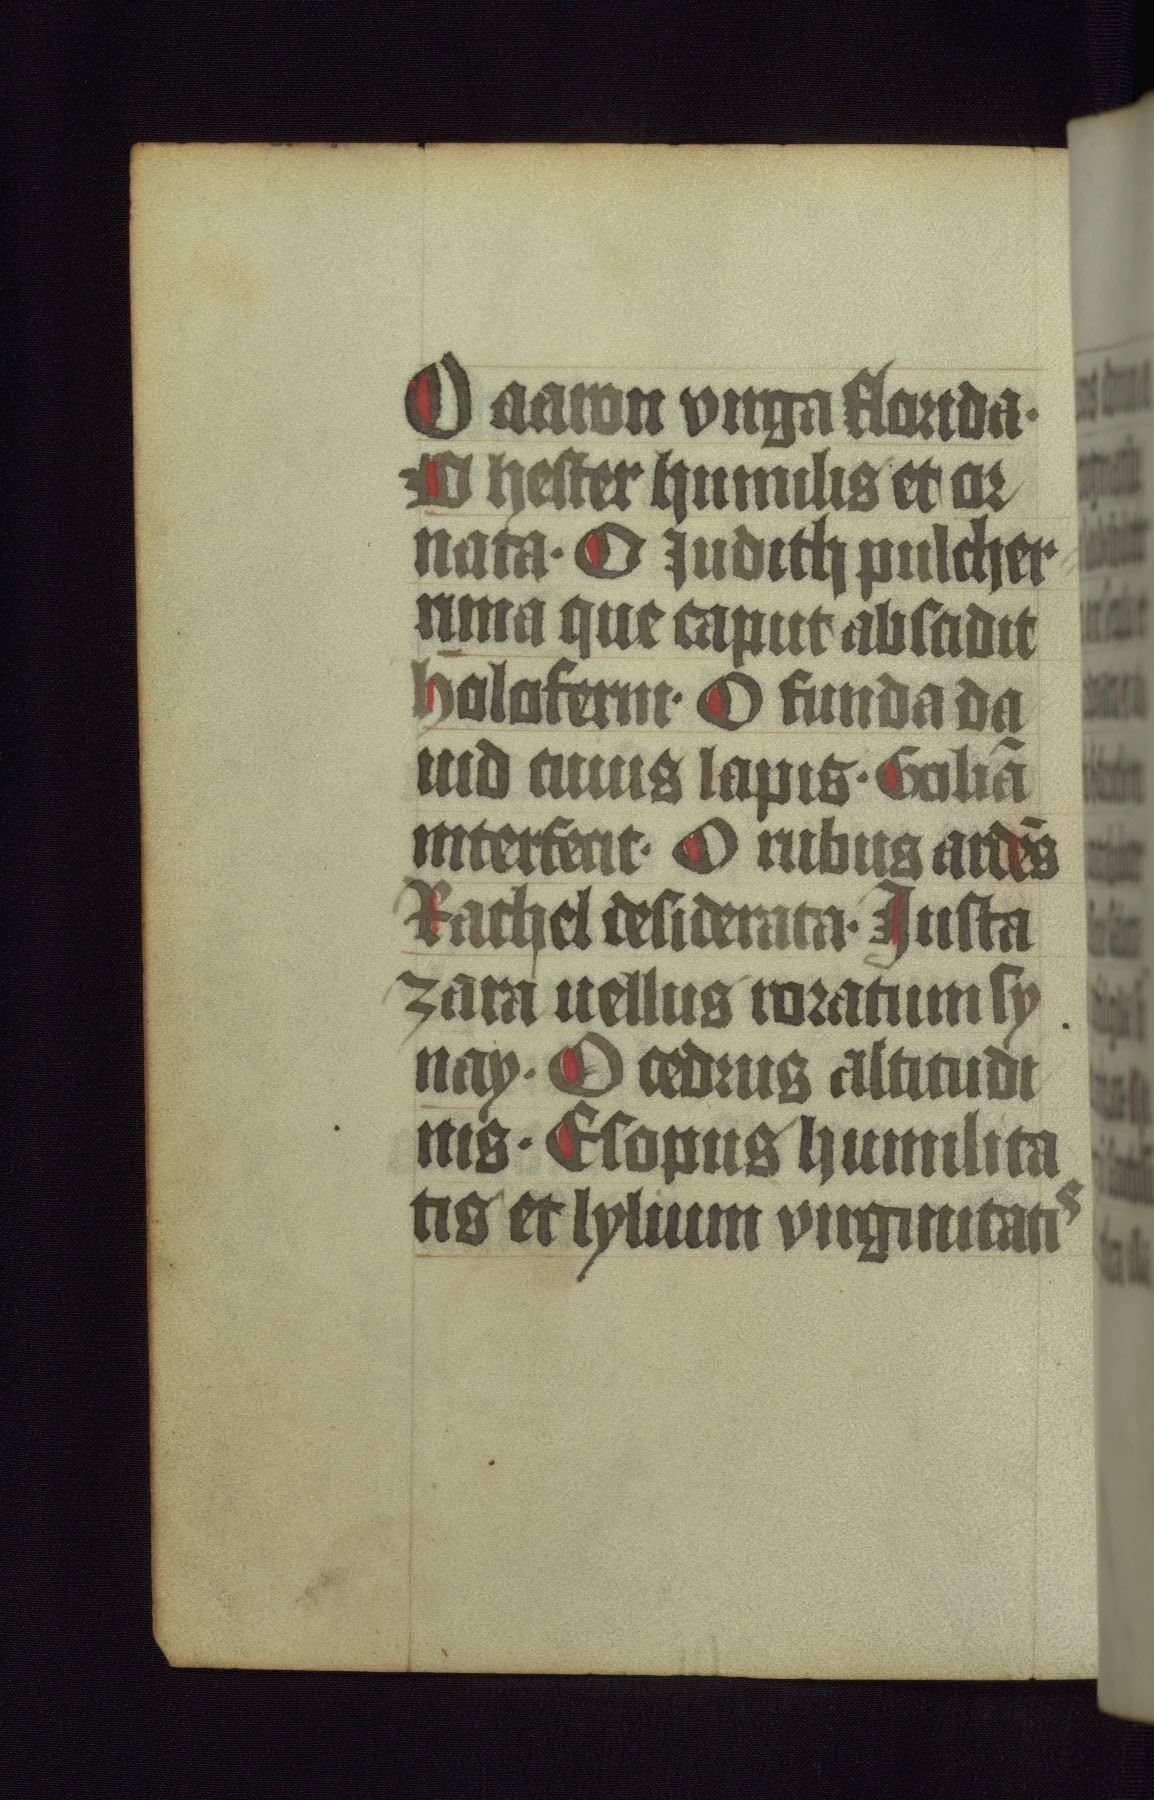 O aaron virga florida.
O hester humilis et or
nata. O Judith pulcher
rima que caput abscidit
holoferni. O funda da
uid cuius lapis. Goliā
interfecit. O rubus ardēs
Rachel desiderata. Justa
zara uellus roratum sy
nay. O cedrus altitudi
nis. Esopus humilita
tis et lylium virginitatis